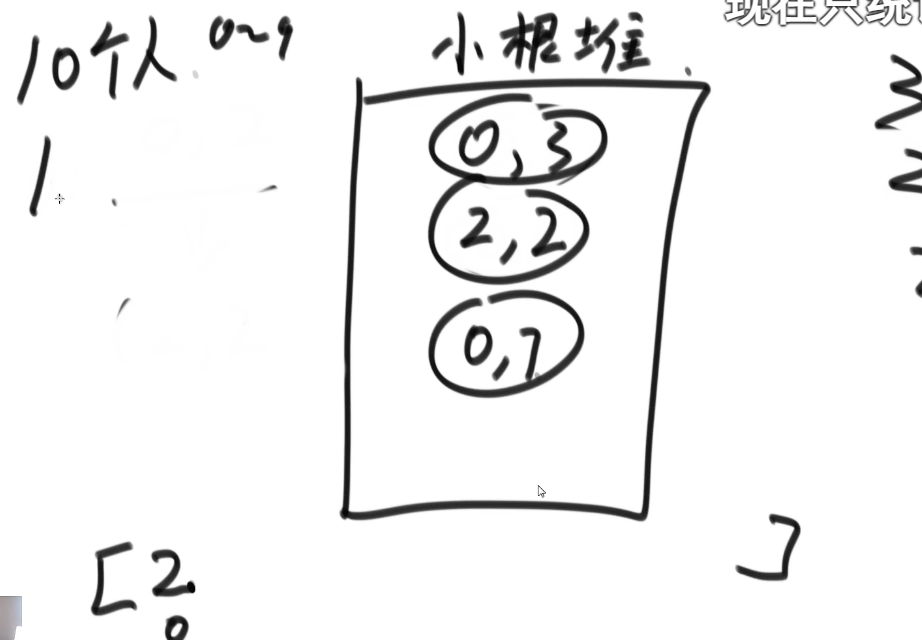 现在只统
10个人 0~9
小根堆
0,3
1
2,2
0,7
[2 ]
0